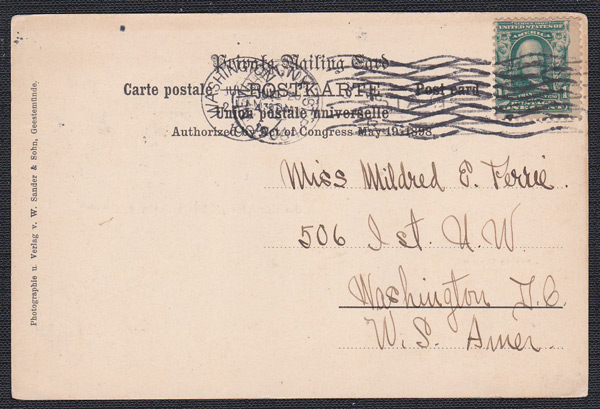 Private Mailing Card
Carte postale — POSTKARTE — Post card
Union postale universelle
Authorized by Act of Congress May 19. 1898
UNITED STATES OF
AMERICA
Miss Mildred E. Ferrie.
506 I st. N. W.
Washington D.C.
U.S. Amer.
Photographie u. Verlag v. W. Sander & Sohn, Geestemünde.